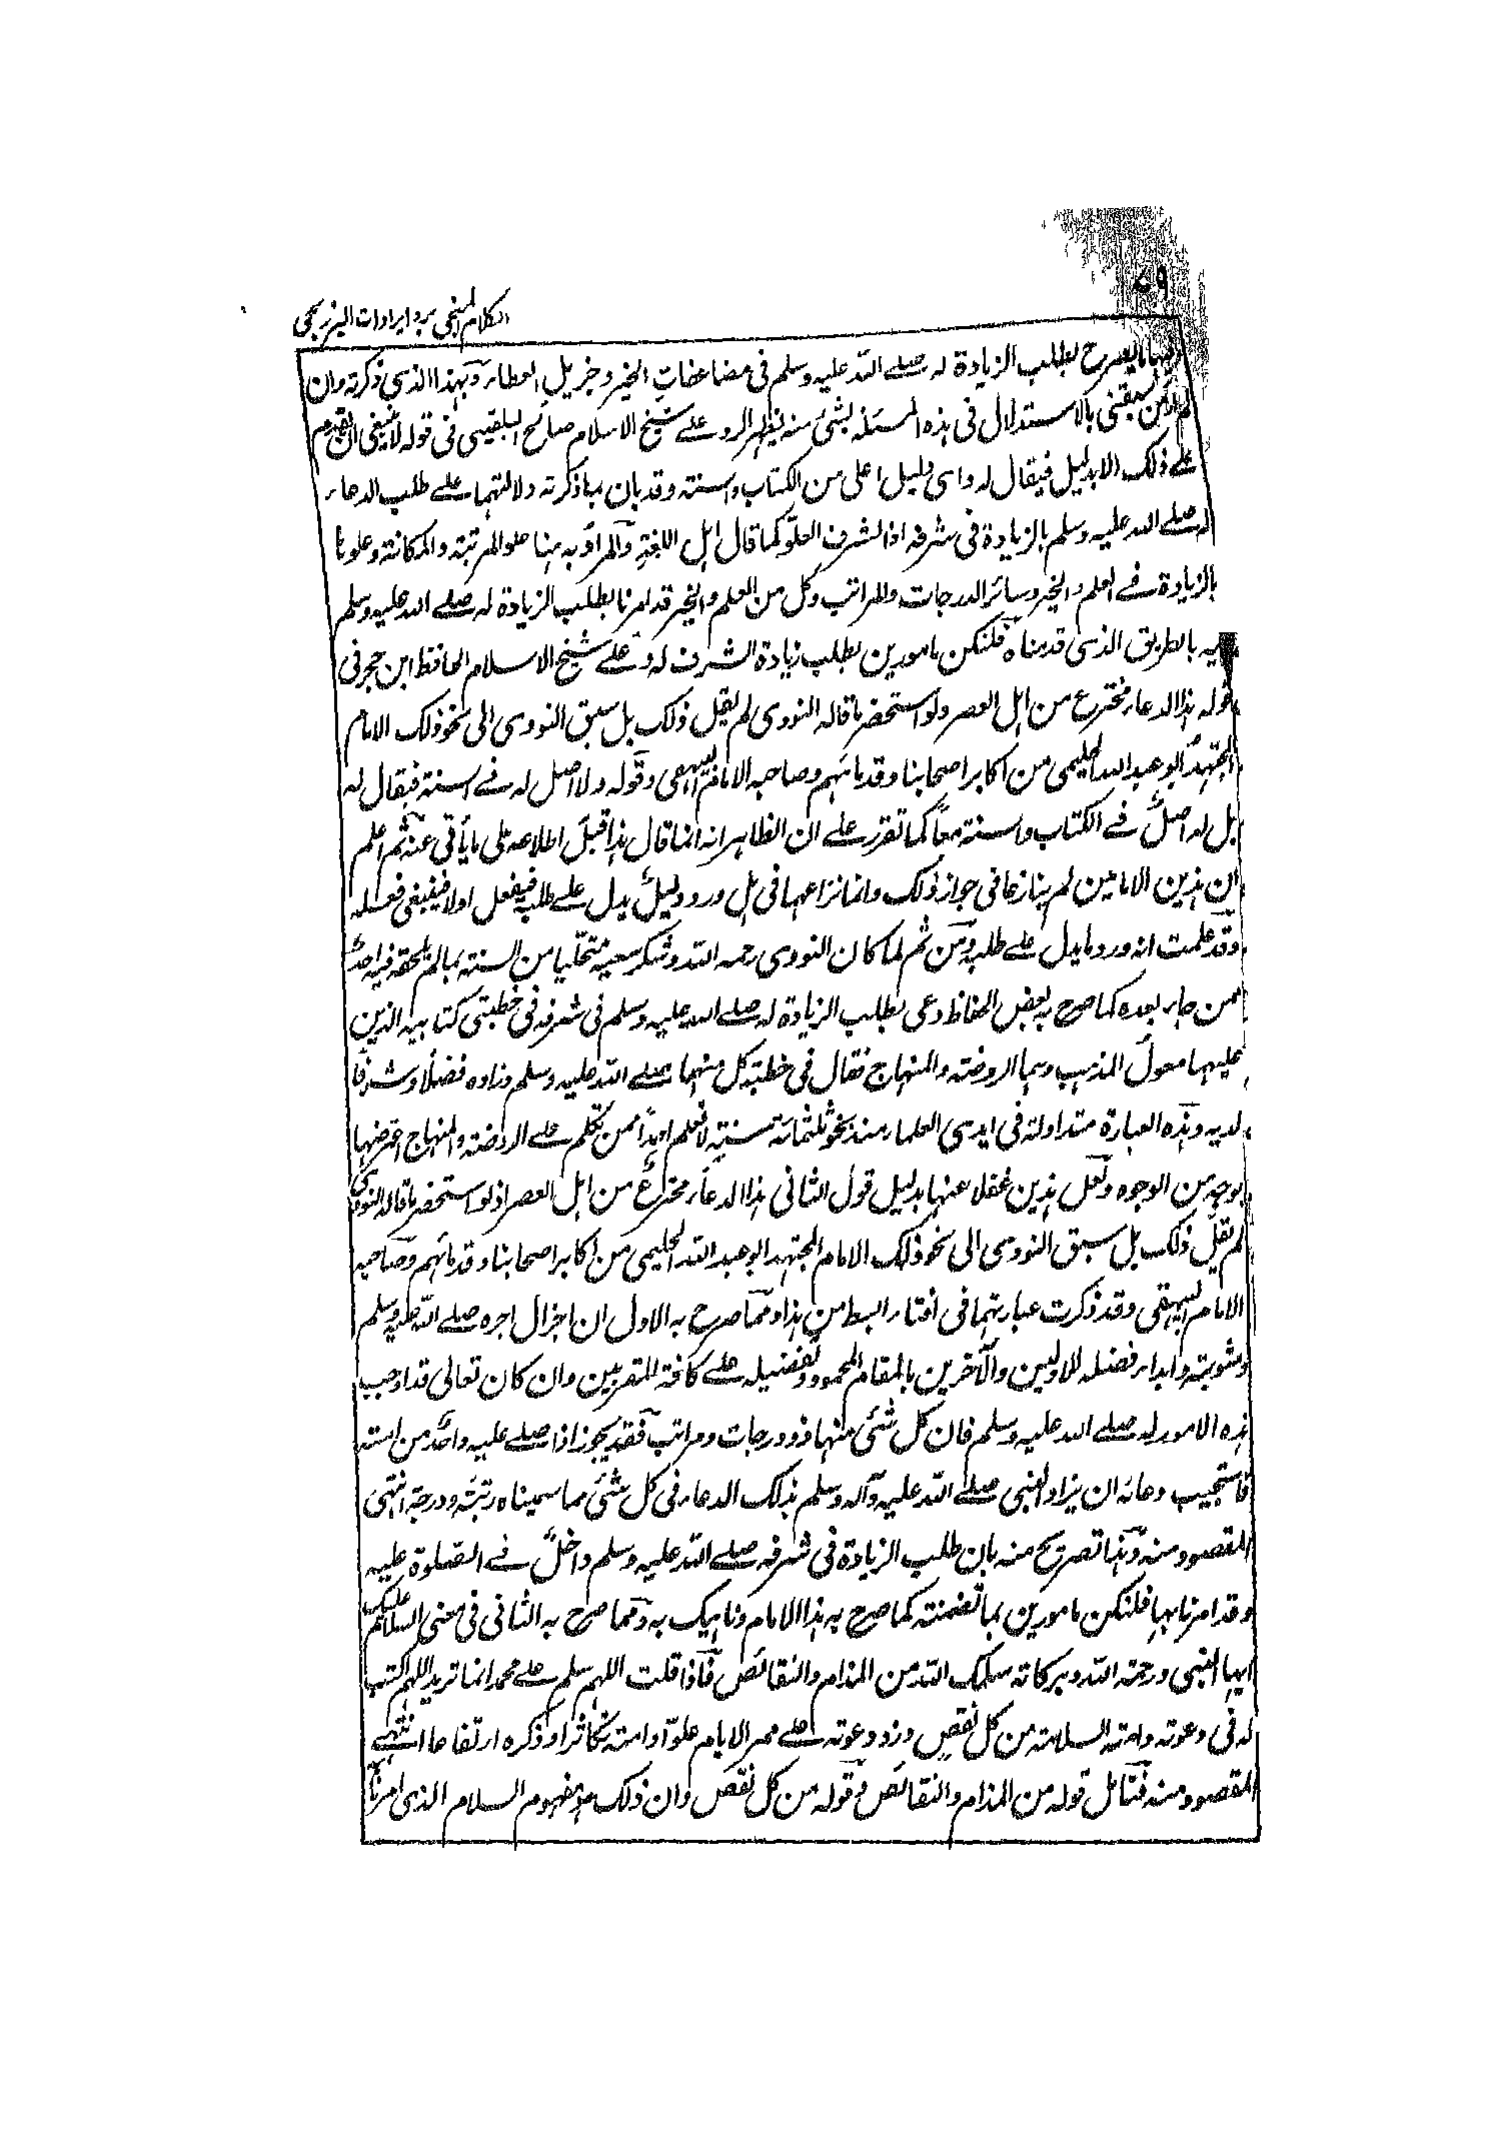 ٤٩
الكلام المنجی برد ایرادات البرزنجی
یصرح بطلب الزیادة له صلے اللہ علیه وسلم فی مضاعفات الخیر وجزیل العطاء وبهذا الذی ذکرته وان
لم ار من سبقنی بالاستدلال فی هذه المسئلة بشئ منه یظهر الرد علے شیخ الاسلام صالح البلقینی فی قوله لا ینبغی ان یقدم
علے ذلک الا بدلیل فیقال له وای دلیل اعلی من الکتاب والسنة وقد بان بما ذکرته دلالتهما علے طلب الدعاء
له صلے اللہ علیه وسلم بالزیادة فی شرفه اذ الشرف العلو کما قال اهل اللغة والمراد به هنا علو المرتبة والمکانة وعلوها
بالزیادة فے العلم والخیر وسائر الدرجات والمراتب وکل من العلم والخیر قد امرنا بطلب الزیادة له صلے اللہ علیه وسلم
فیه بالطریق الذی قدمناه فلنکن مامورین بطلب زیادة الشرف له وعلے شیخ الاسلام الحافظ ابن حجر فی
قوله هذا الدعاء مخترع من اهل العصر ولو استحضر ما قاله النووی لم یقل ذلک بل سبق النووی الی نحو ذلک الامام
المجتهد ابو عبد اللہ الحلیمی من اکابر اصحابنا وقدمائهم وصاحبه الامام البیهقی وقوله ولا اصل له فے السنة فیقال له
بل له اصل فے الکتاب والسنة معا کما تقرر علے ان الظاهر انه انما قال هذا قبل اطلاعه علی ما یأتی عنه ثم اعلم
ان هذین الامامین لم ینازعا فی جواز ذلک وانما نزاعهما فی هل ورد دلیل یدل علے طلبه فیفعل اولا فینبغی فعله
وقد علمت انه ورد ما یدل علے طلبه ومن ثم لما کان النووی رحمه اللہ وشکر سعیه متحلیا من السنة بما لم یلحقه فیه احد
ممن جاء بعده کما صرح به بعض الحفاظ دعی بطلب الزیادة له صلے اللہ علیه وسلم فی شرفه فی خطبتی کتابیه الذین
علیهما معول المذهب وهما الروضة والمنهاج فقال فی خطبة کل منهما صلے اللہ علیه وسلم وزاده فضلا وشرفا
لدیه وهذه العبارة متداولة فی ایدی العلماء منذ نحو ثلثمائة سنة لا نعلم احدا ممن تکلم علے الروضة والمنهاج اعترضها
بوجه من الوجوه ولعل هذین غفلا عنها بدلیل قول الثانی هذا الدعاء مخترع من اهل العصر اذ لو استحضر ما قاله النووی
لم یقل ذلک بل سبق النووی الی نحو ذلک الامام المجتهد ابو عبد اللہ الحلیمی من اکابر اصحابنا وقدمائهم وصاحبه
الامام البیهقی وقد ذکرت عبارتهما فی افتاء ابسط من هذا ومما صرح به الاول ان اجزال اجره صلے اللہ علیه وسلم
ومثوبته وابداء فضله للاولین والآخرین بالمقام المحمود وتفضیله علے کافة المقربین وان کان تعالی قد اوجب
هذه الامور له صلے اللہ علیه وسلم فان کل شئی منها ذو درجات ومراتب فقد یجوز اذا صلے علیه واحد من امته
فاستجیب دعائه ان یزاد النبی صلے اللہ علیه وآله وسلم بذلک الدعاء فی کل شئ مما سمیناه رتبة ودرجة انتهی
المقصود منه وهذا تصریح منه بان طلب الزیادة فی شرفه صلے اللہ علیه وسلم داخل فے الصلوة علیه
وقد امرنا بها فلنکن مامورین بما تضمنته کما صرح به هذا الامام وناهیک به ومما صرح به الثانی فی معنی السلام علیک
ایها النبی ورحمة اللہ وبرکاته سلمک اللہ من المذام والنقائص فاذا قلت اللهم سلم علے محمد انما ترید اللهم اکتب
له فی دعوته وامته السلامة من کل نقص وزد دعوته علے ممر الایام علوا وامته تکاثرا وذکره ارتفاعا انتهے
المقصود منه فتأمل قوله من المذام والنقائص وقوله من کل نقص وان ذلک مفهوم السلام الذی امرنا